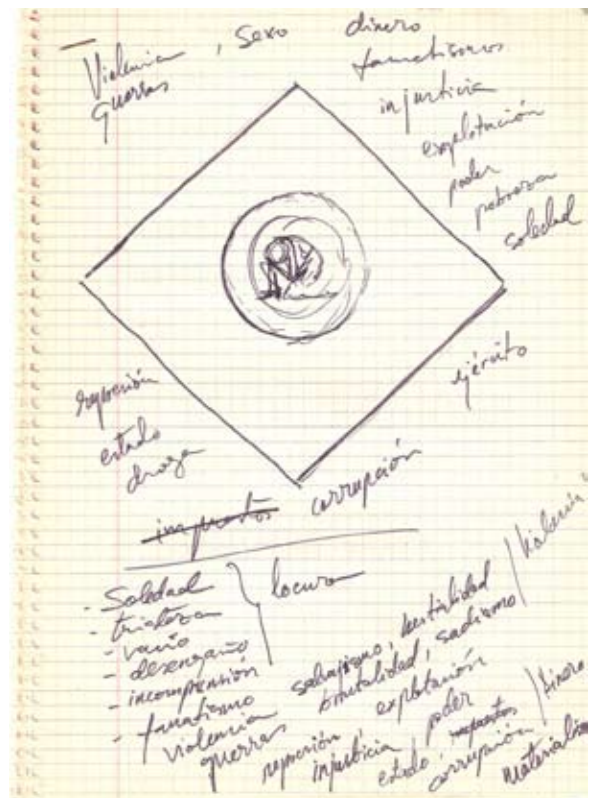 Violencia, sexo dinero
guerras fanatismos
injusticia
explotación
poder
pobreza
soledad
represión ejército
estado
droga
impuestos corrupción
- Soledad
- tristeza
- vacío
- desengaño
- incomprensión
- fanatismo
locura
violencia salvajismo, bestialidad
guerras brutalidad, sadismo
"violencia"
represión explotación
injusticia, poder
estado, impuestos
corrupción
dinero
materialismo